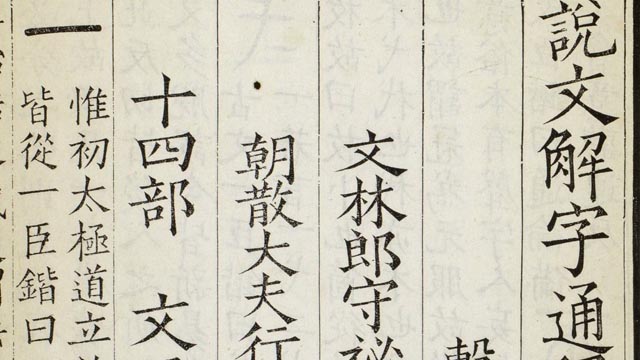 說文解字通
文林郎守祕
朝散大夫行
十四部 文
一 惟初太極道立
皆從一臣鍇曰